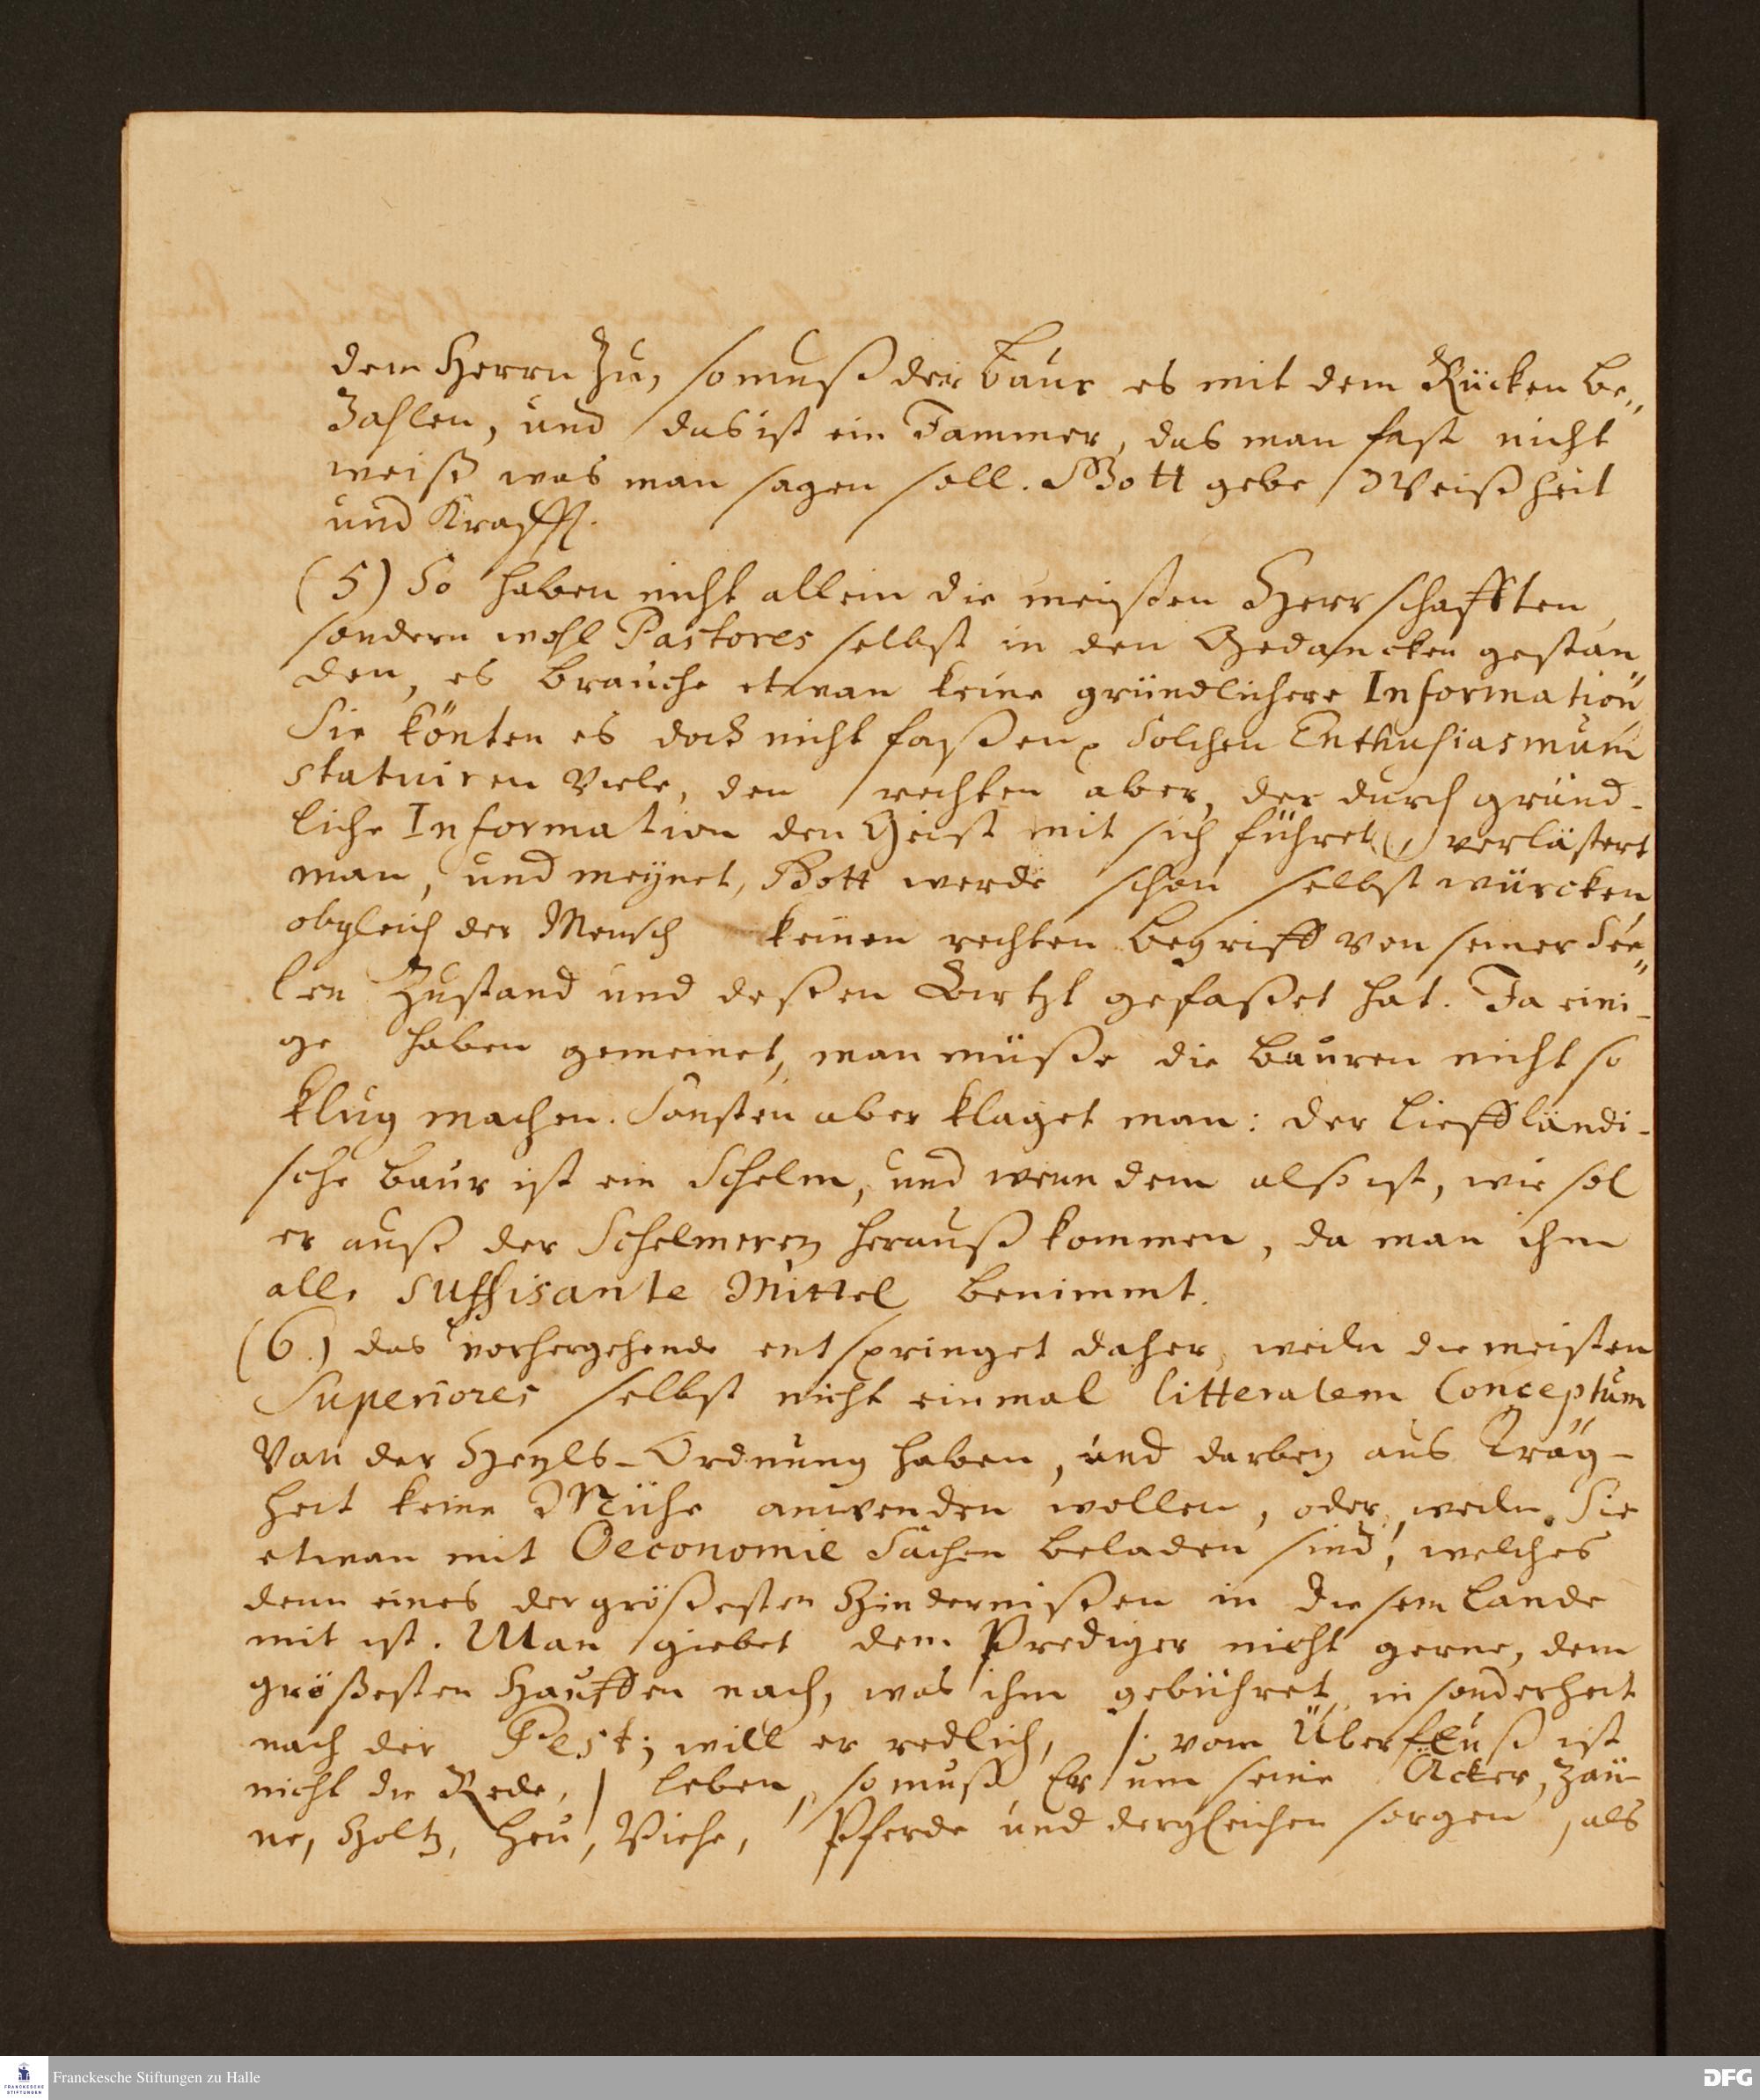 dem Herrn Zu, so muß der baur es mit dem Rücken be„
Zahlen, und das ist ein Jammer, das man fast nicht
weiß was man sagen soll. Gott gebe Weißheit
und Krafft.
(5) So haben nicht allein die meisten Herrschafften,
sondern wohl Pastores selbst in den Gedancken gestan„
den, es brauche etwan keine gründlichere Information,
Sie könten es doch nicht faßen, Solchen Enthusiasmum
statuiren Viele, den rechten aber, der durch gründ-
liche Information den Geist mit sich führet, verlästert
man, und meynet, Gott werde schon selbst würcken,
obgleich der Mensch keinen rechten begriff von seiner See„
len Zustand und deßen gefaßet hat. Ja eini-
ge haben gemeinet, man müße die bauren nicht so
klug machen. Sonsten aber klaget man: der liefländi-
sche baur ist ein Schelm, und wenn dem also ist, wie sol
er auß der Schelmerey herauß kommen, da man ihm
alle suffisante Mittel benimmt.
(6.) das vorhergehende entspringet daher, weiln die meisten
Superiores selbst nicht einmal litteralem Conceptum
Von der Heyls-Ordnung haben, und darbey aus Träg-
heit keine Mühe anwenden wollen, oder, weiln Sie
etwan mit Oeconomie Sachen beladen sind, welches
denn eines der größesten Hindernißen in diesem Lande
mit ist. Man giebet dem Prediger nicht gerne, dem
größesten Hauffen nach, was ihm gebühret, in sonderheit
nach der Pest; will er redlich, /: vom Überfluß ist
nicht die Rede, / leben, so muß Er um seine Äcker, Zäu-
ne, Holtz, Heu, Viehe, Pferde und dergleichen sorgen, als
Franckesche Stiftungen zu Halle
FRANCKESCHE STIFTUNGEN
DFG